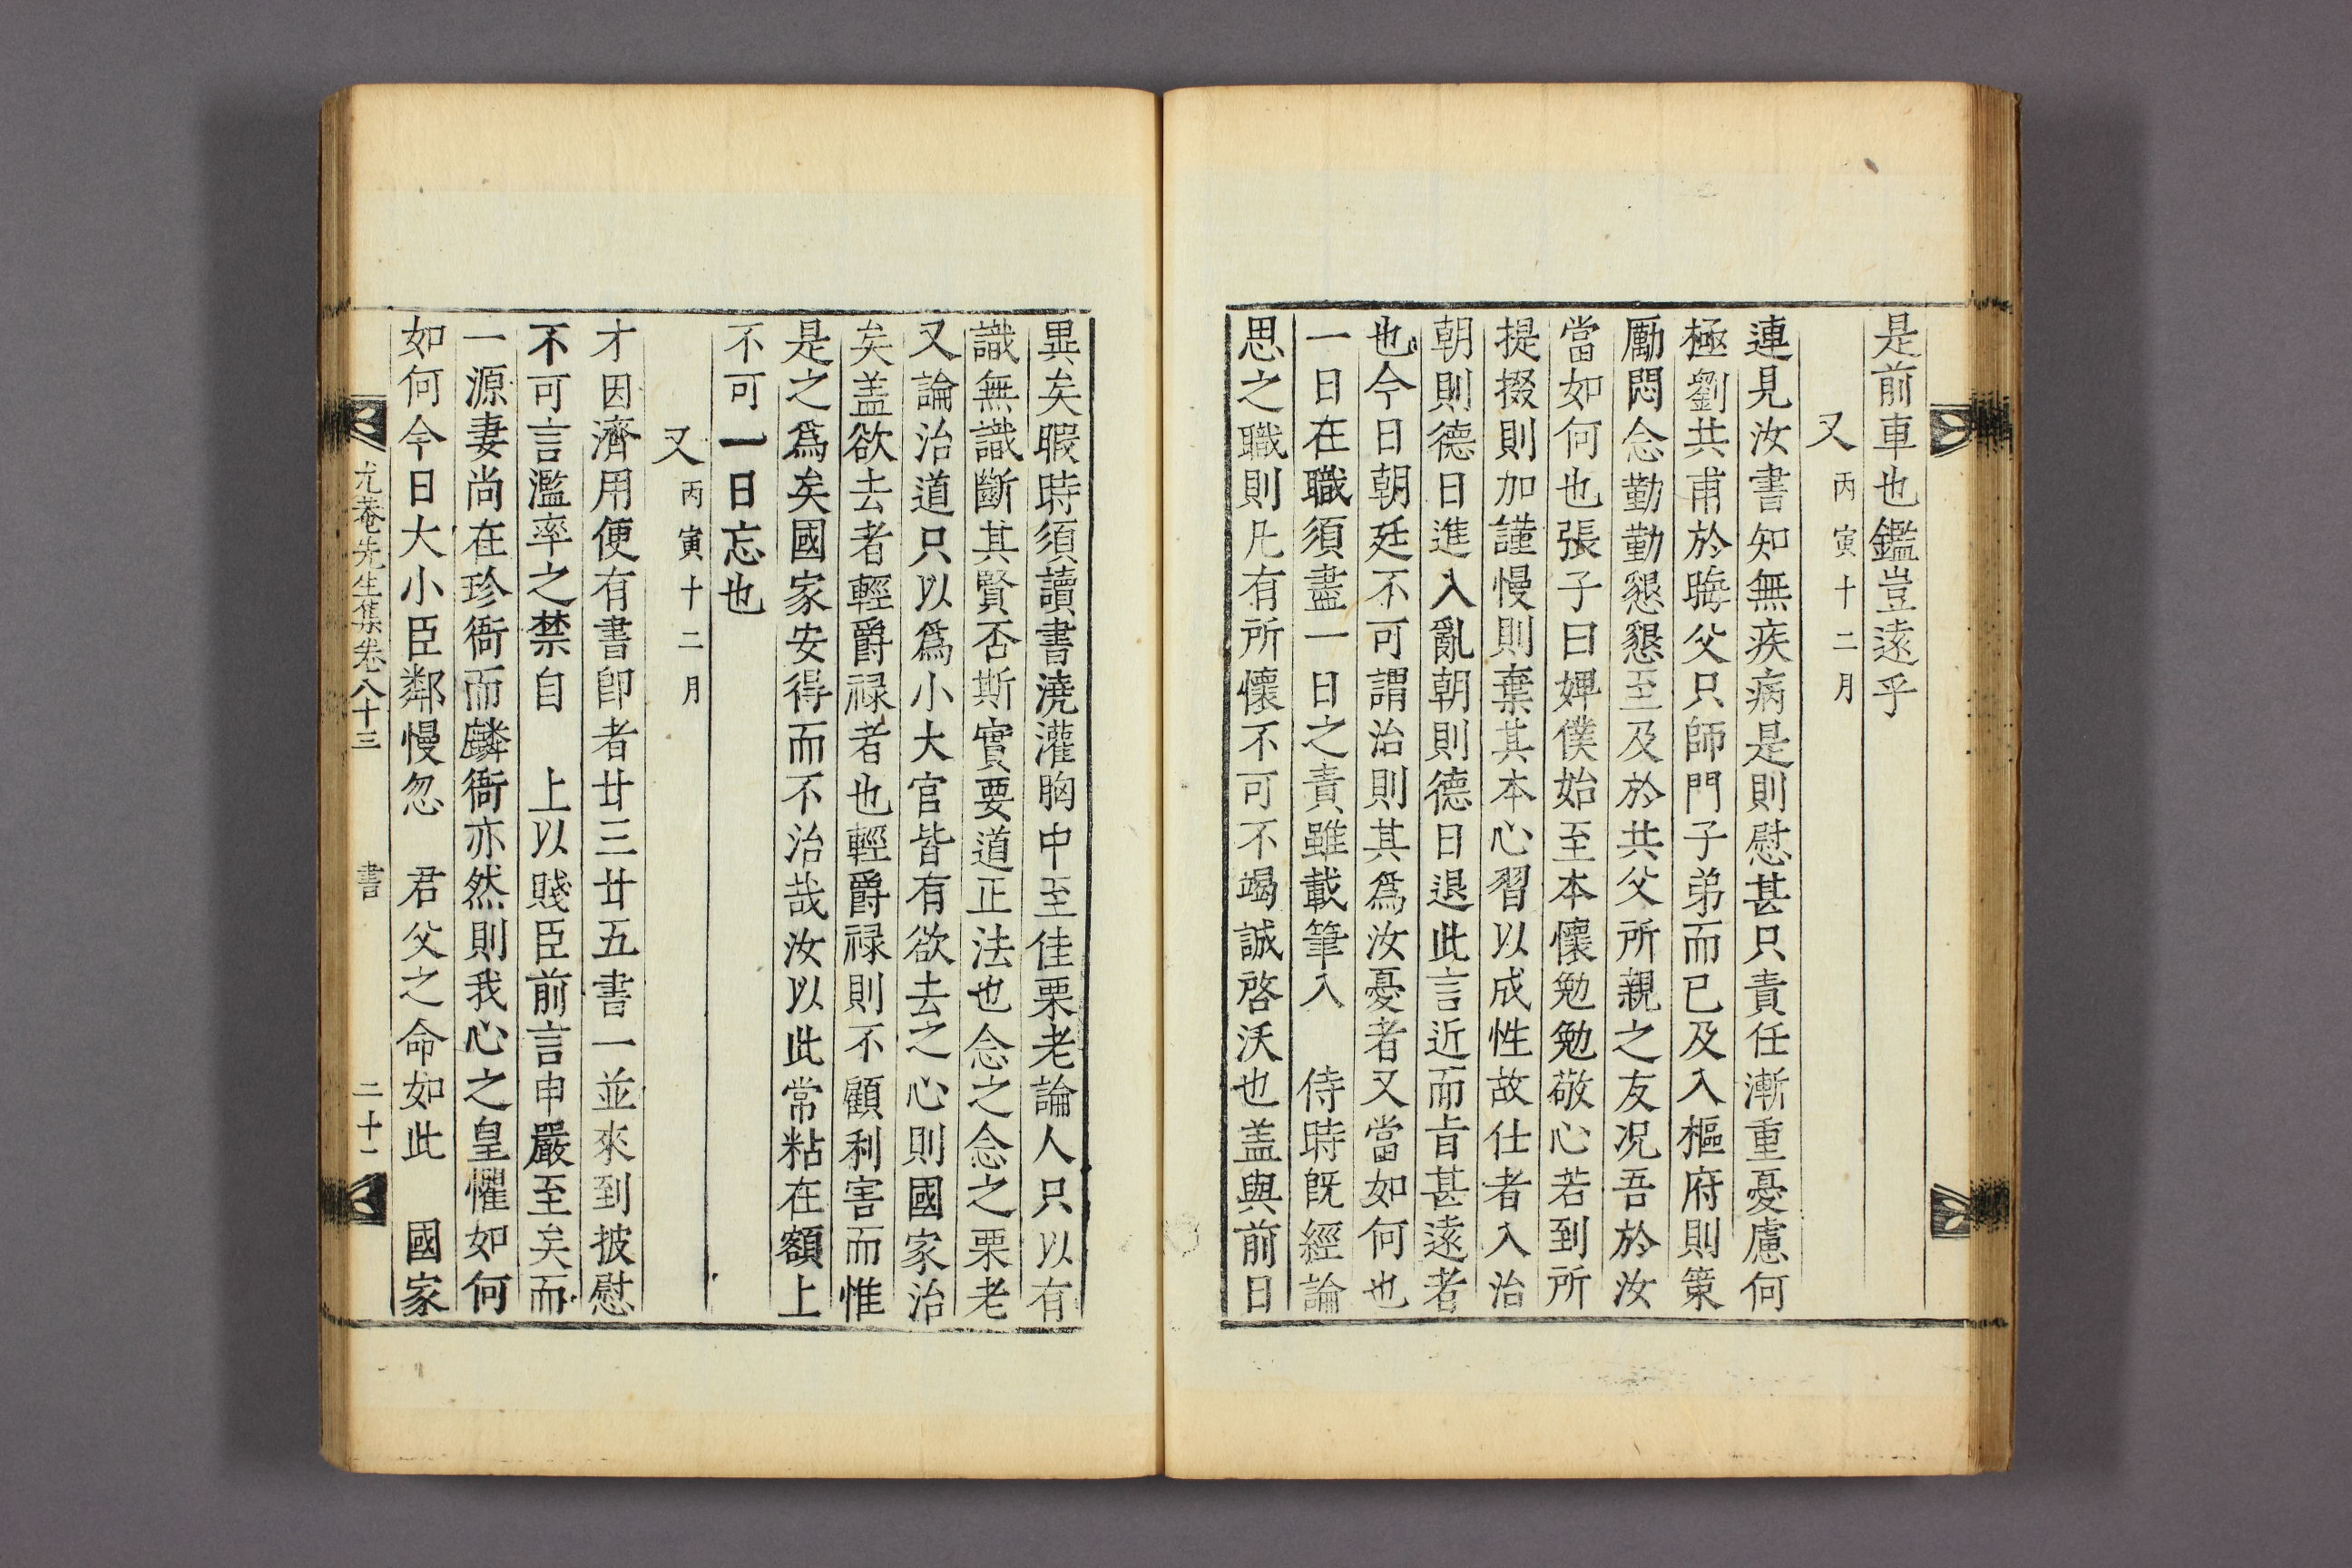 是前車也鑑豈遠乎
又丙寅十二月
連見汝書知無疾病是則慰甚只責任漸重憂慮何
極劉共甫於晦父只師門子弟而已及入樞府則策
勵悶念勤勤懇懇至及於共父所親之友况吾於汝
當如何也張子曰婢僕始至本懷勉勉敬心若到所
提掇則加謹慢則棄其本心習以成性故仕者入治
朝則德日進入亂朝則德日退此言近而旨甚遠者
也今日朝廷不可謂治則其爲汝憂者又當如何也
一日在職須盡一日之責雖載筆入　侍時旣經論
思之職則凡有所懷不可不竭誠啓沃也盖與前日
異矣暇時須讀書澆灌胸中至佳栗老論人只以有
識無識斷其賢否斯實要道正法也念之念之栗老
又論治道只以爲小大官皆有欲去之心則國家治
矣盖欲去者輕爵祿者也輕爵祿則不顧利害而惟
是之爲矣國家安得而不治哉汝以此常粘在額上
不可一日忘也
又丙寅十二月
才因濟用便有書卽者廿三廿五書一並來到披慰
不可言濫率之禁自　上以賤臣前言申嚴至矣而
一源妻尚在珍衙而麟衙亦然則我心之皇懼如何
如何今日大小臣鄰慢忽　君父之命如此　國家
尤菴先生集卷八十三　書　二十一